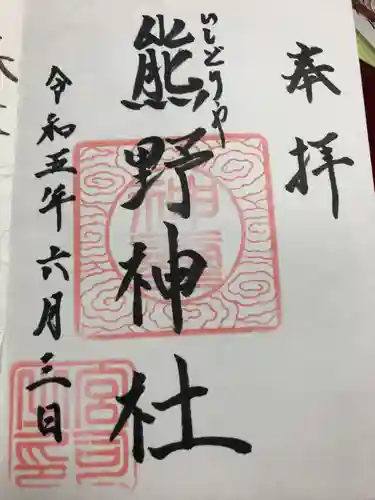 奉拝
いしどりや
熊野神社
令和五年六月三日